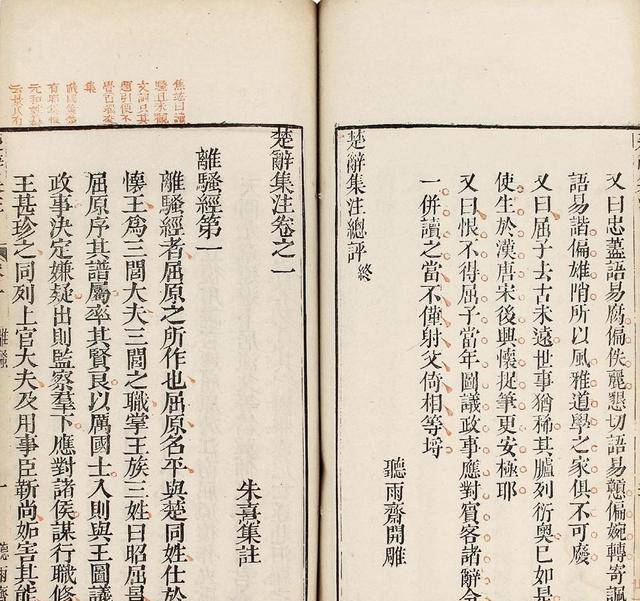 又曰忠藎語易腐偏佚麗懇切語易戇偏婉轉寄諷
語易諧偏雄陗所以風雅道學之家俱不可廢
又曰屈子去古未遠世事猶稀其臚列衍奧已如是
使生於漢唐宋後興懷捉筆更安極耶
又曰恨不得屈子當年圖議政事應對賓客諸辭令
一併讀之當不僅射父倚相等埒
聽雨齋開雕
楚辭集注總評 終
楚辭集注卷之一
朱熹集註
離騷經第一
離騷經者屈原之所作也屈原名平與楚同姓仕於
懷王爲三閭大夫三閭之職掌王族三姓曰昭屈景
屈原序其譜屬率其賢良以厲國士入則與王圖議
政事決定嫌疑出則監察羣下應對諸侯謀行職修
王甚珍之同列上官大夫及用事臣靳尚妬害其能
離騷
聽雨齋